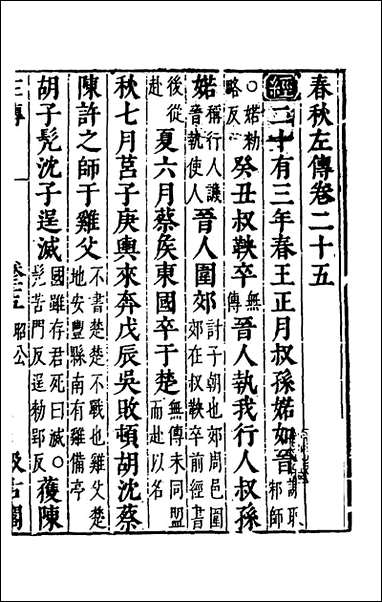 春秋左傳卷二十五
經二十有三年春王正月叔孫婼如晉謝取邾師
○婼勑略反癸丑叔鞅卒無傳晉人執我行人叔孫
婼稱行人譏晉執使人晉人圍郊討子朝也郊周邑圍郊在叔鞅卒前經書
後從赴夏六月蔡侯東國卒于楚無傳未同盟而赴以名
秋七月莒子庚輿來奔戊辰吳敗頓胡沈蔡
陳許之師于雞父不書楚楚不戰也雞父楚地安豐縣南有雞備亭
胡子髠沈子逞滅國雖存君死曰滅○髠苦門反逞勑郢反獲陳
左傳 卷二十五 昭公 汲古閣